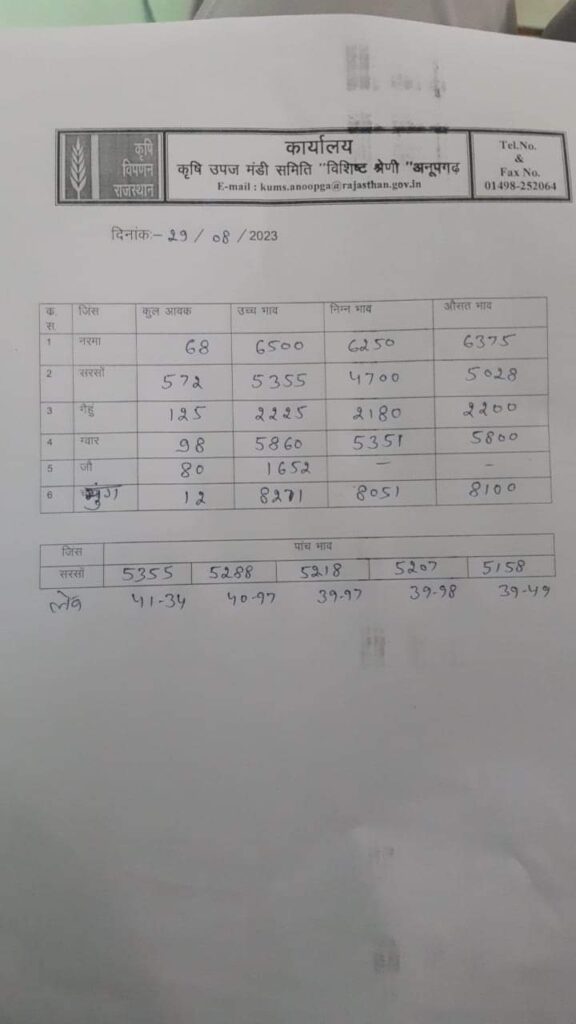 कृषि
विपणन
राजस्थान
कार्यालय
कृषि उपज मंडी समिति "विशिष्ट श्रेणी "अनूपगढ़
E-mail : kums.anoopga@rajasthan.gov.in
Tel.No.
&
Fax No.
01498-252064
दिनांक:- 29 / 08 / 2023
क. स. जिंस कुल आवक उच्च भाव निम्न भाव औसत भाव
1 नरमा 68 6500 6250 6375
2 सरसों 572 5355 4700 5028
3 गेहुं 125 2225 2180 2200
4 ग्वार 98 5860 5351 5800
5 जौ 80 1652 - -
6 मुंग 12 8271 8051 8100
जिंस पांच भाव
सरसों 5355 5288 5218 5207 5158
लेब 41-34 40-97 39-97 39-98 39-49